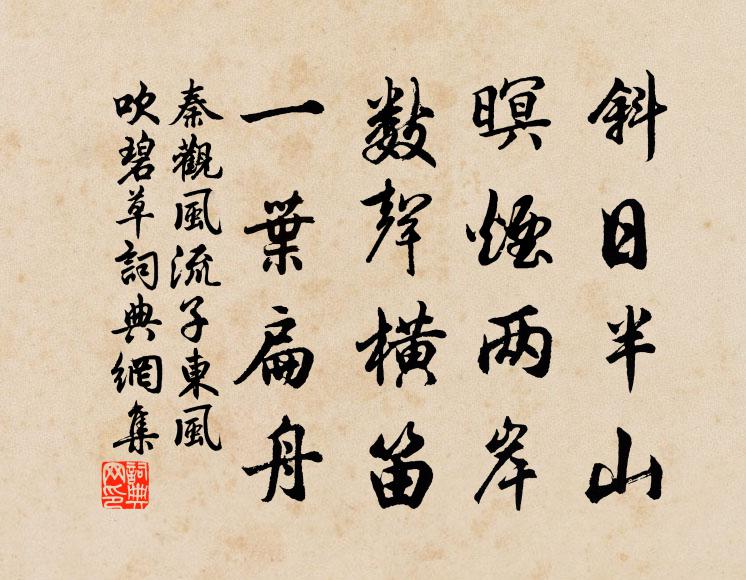 斜日半山
暝煙两岸
數聲橫笛
一葉扁舟
秦觀風流子東風
吹碧草詞典網集
詞典
网印